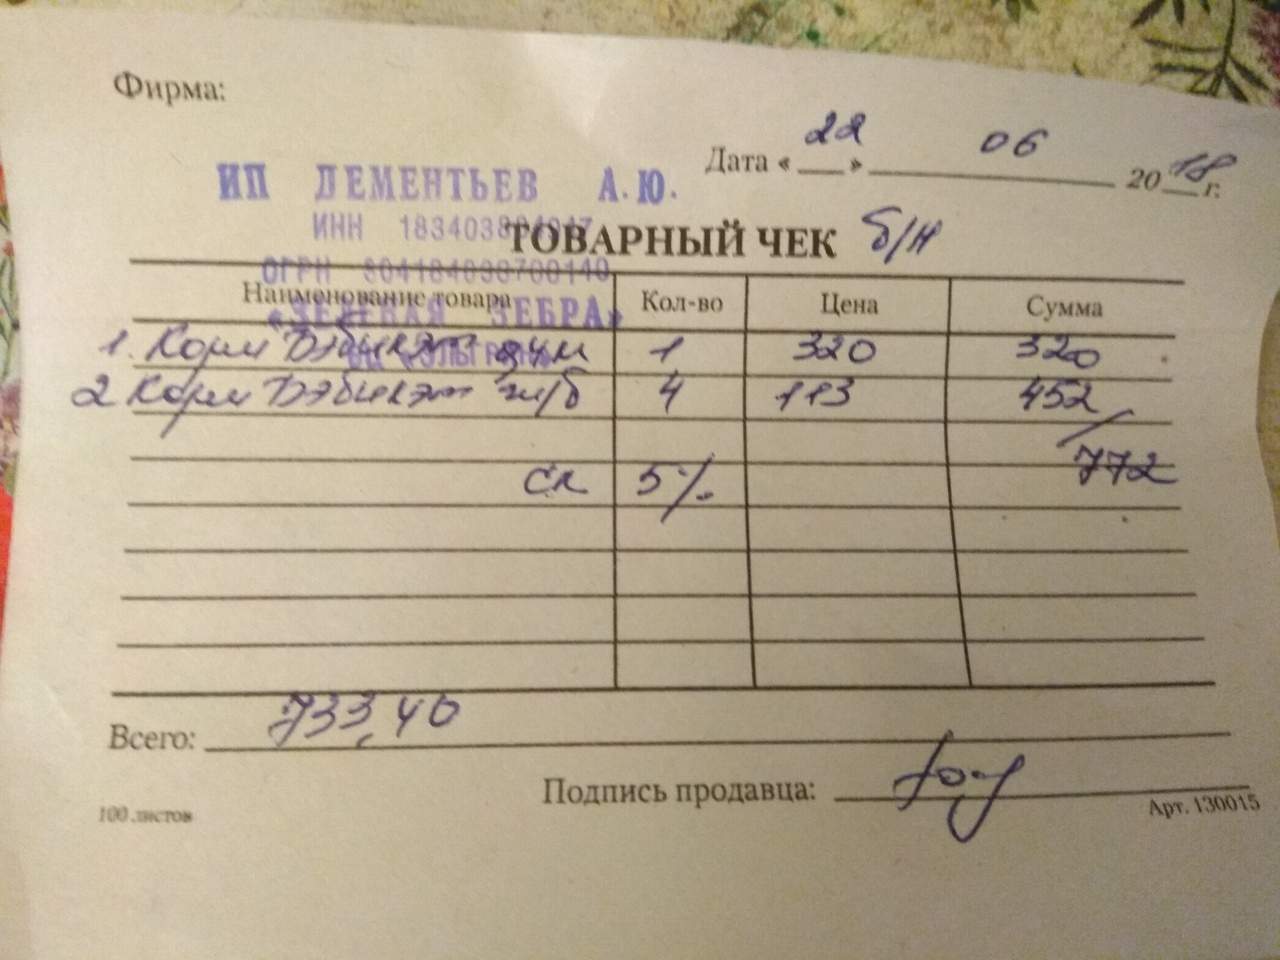 Фирма:
Дата « 22 » 06 2018 г.
ИП ДЕМЕНТЬЕВ А.Ю.
ИНН
ТОВАРНЫЙ ЧЕК б/н
ОГРН
Наименование товара Кол-во Цена Сумма
«ЗЕЛЕНАЯ ЗЕБРА»
1. Корм Бэбикэт 1 320 320
2 Корм Бэбикэт ж/б 4 113 452
772
ск 5%
Всего: 733,40
Подпись продавца:
100 листов
Арт. 130015